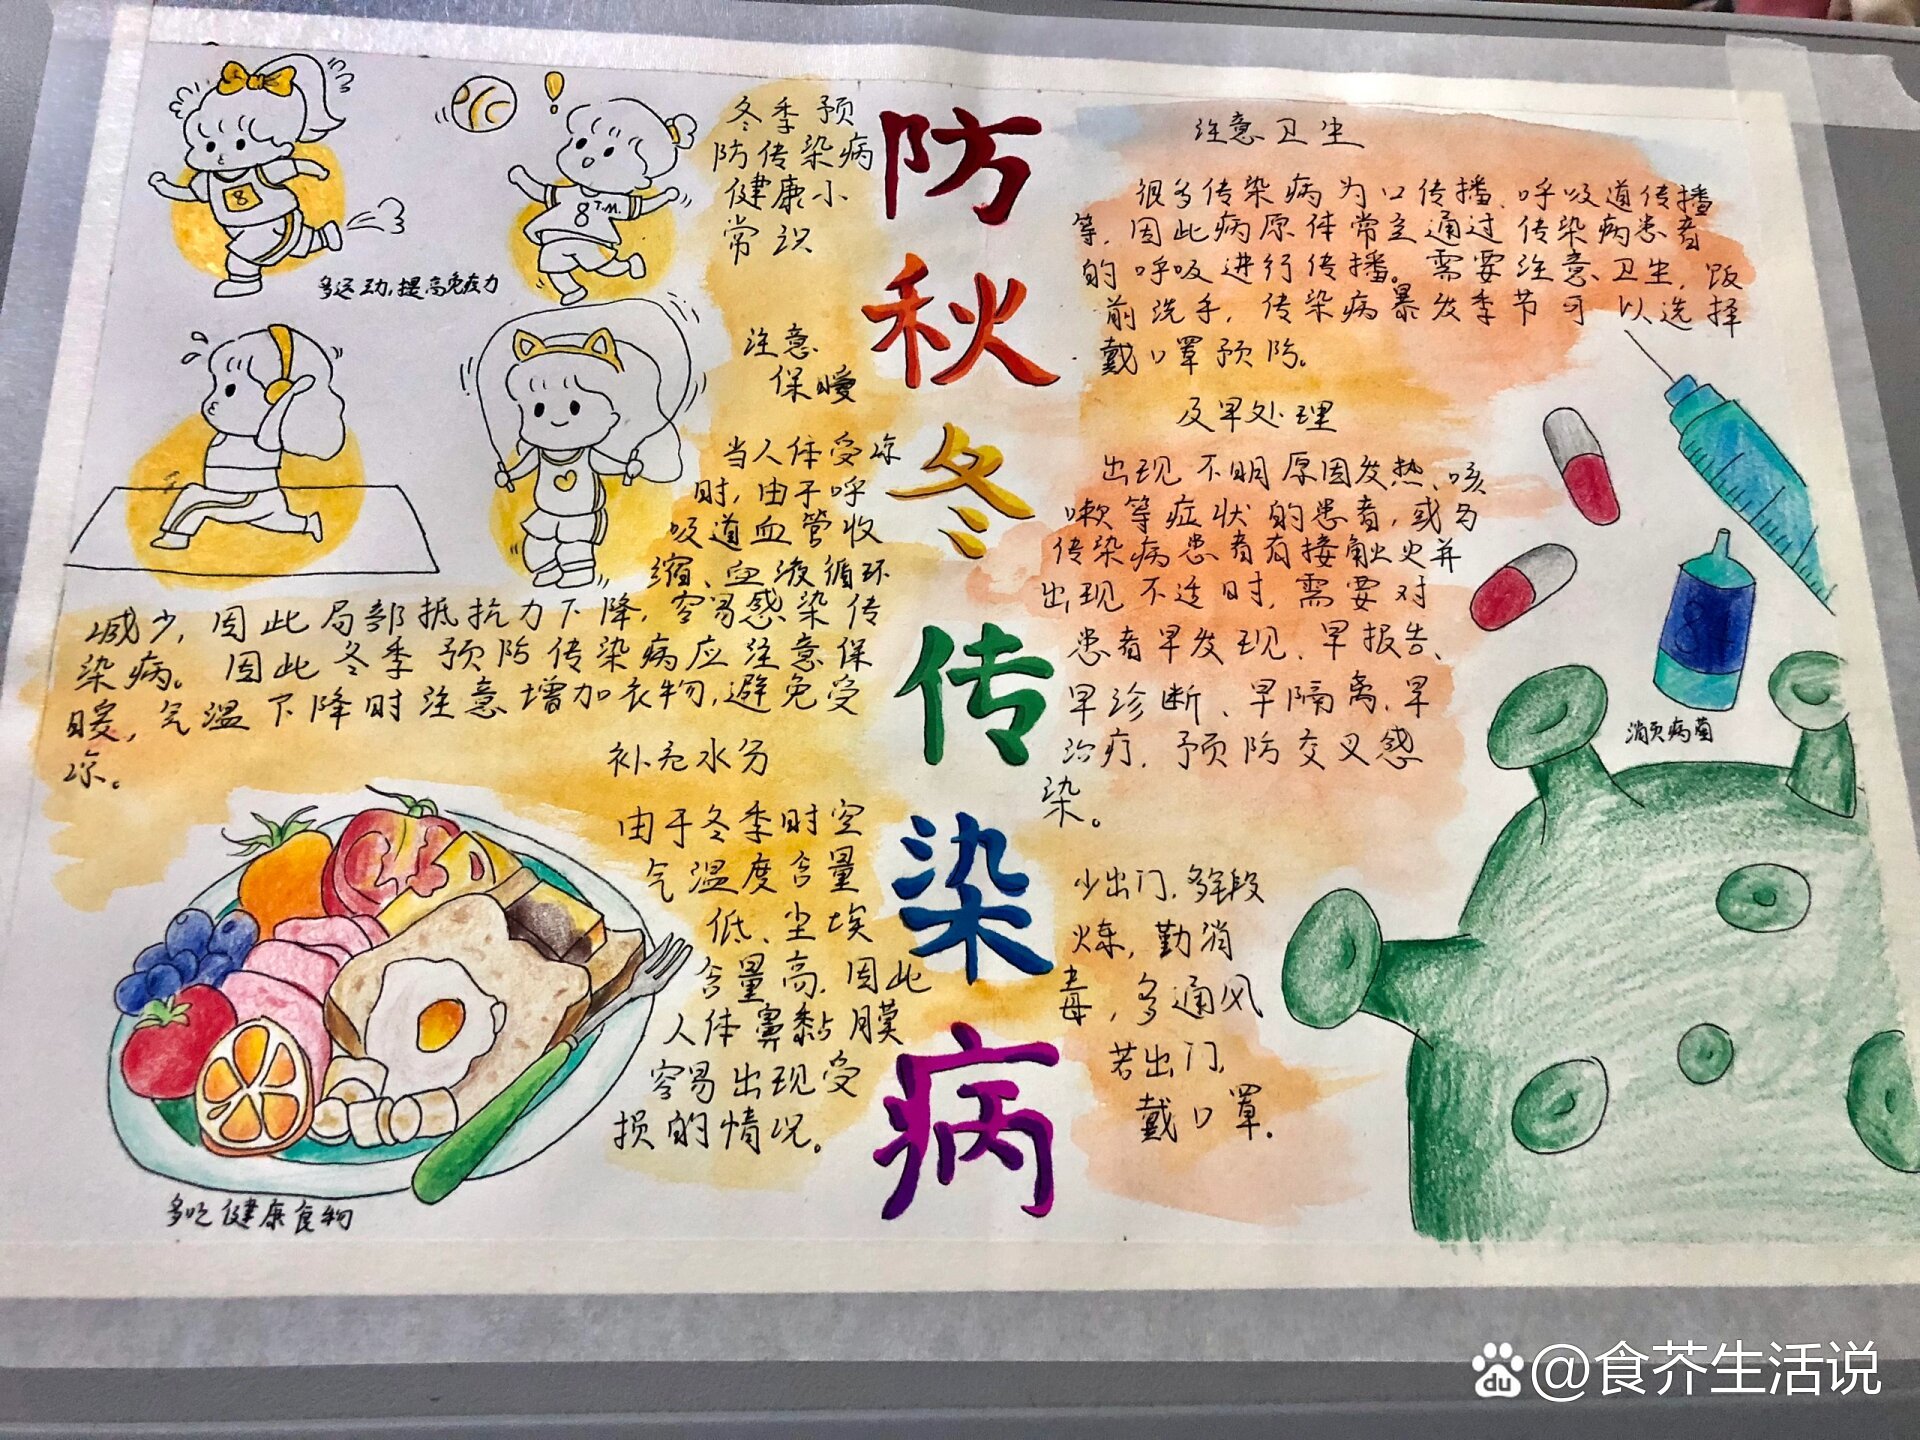 防秋冬传染病
冬季预
防传染病
健康小
常识
多运动,提高免疫力
注意
保暖
当人体受凉
时,由于呼
吸道血管收
缩、血液循环
减少,因此局部抵抗力下降,容易感染传
染病。因此冬季预防传染病应注意保
暖,气温下降时注意增加衣物,避免受
凉。
补充水分
由于冬季时空
气温度含量
低、尘埃
含量高,因此
人体鼻黏膜
容易出现受
损的情况。
多吃健康食物
注意卫生
很多传染病为口传播、呼吸道传播
等,因此病原体常主通过传染病患者
的呼吸进行传播。需要注意卫生,饭
前洗手,传染病暴发季节可以选择
戴口罩预防。
及早处理
出现不明原因发热、咳
嗽等症状的患者,或与
传染病患者有接触史并
出现不适时,需要对
患者早发现、早报告、
早诊断、早隔离、早
治疗,预防交叉感
染。
少出门,多锻
炼,勤消
毒,多通风
若出门,
戴口罩.
消灭病菌
@食芥生活说